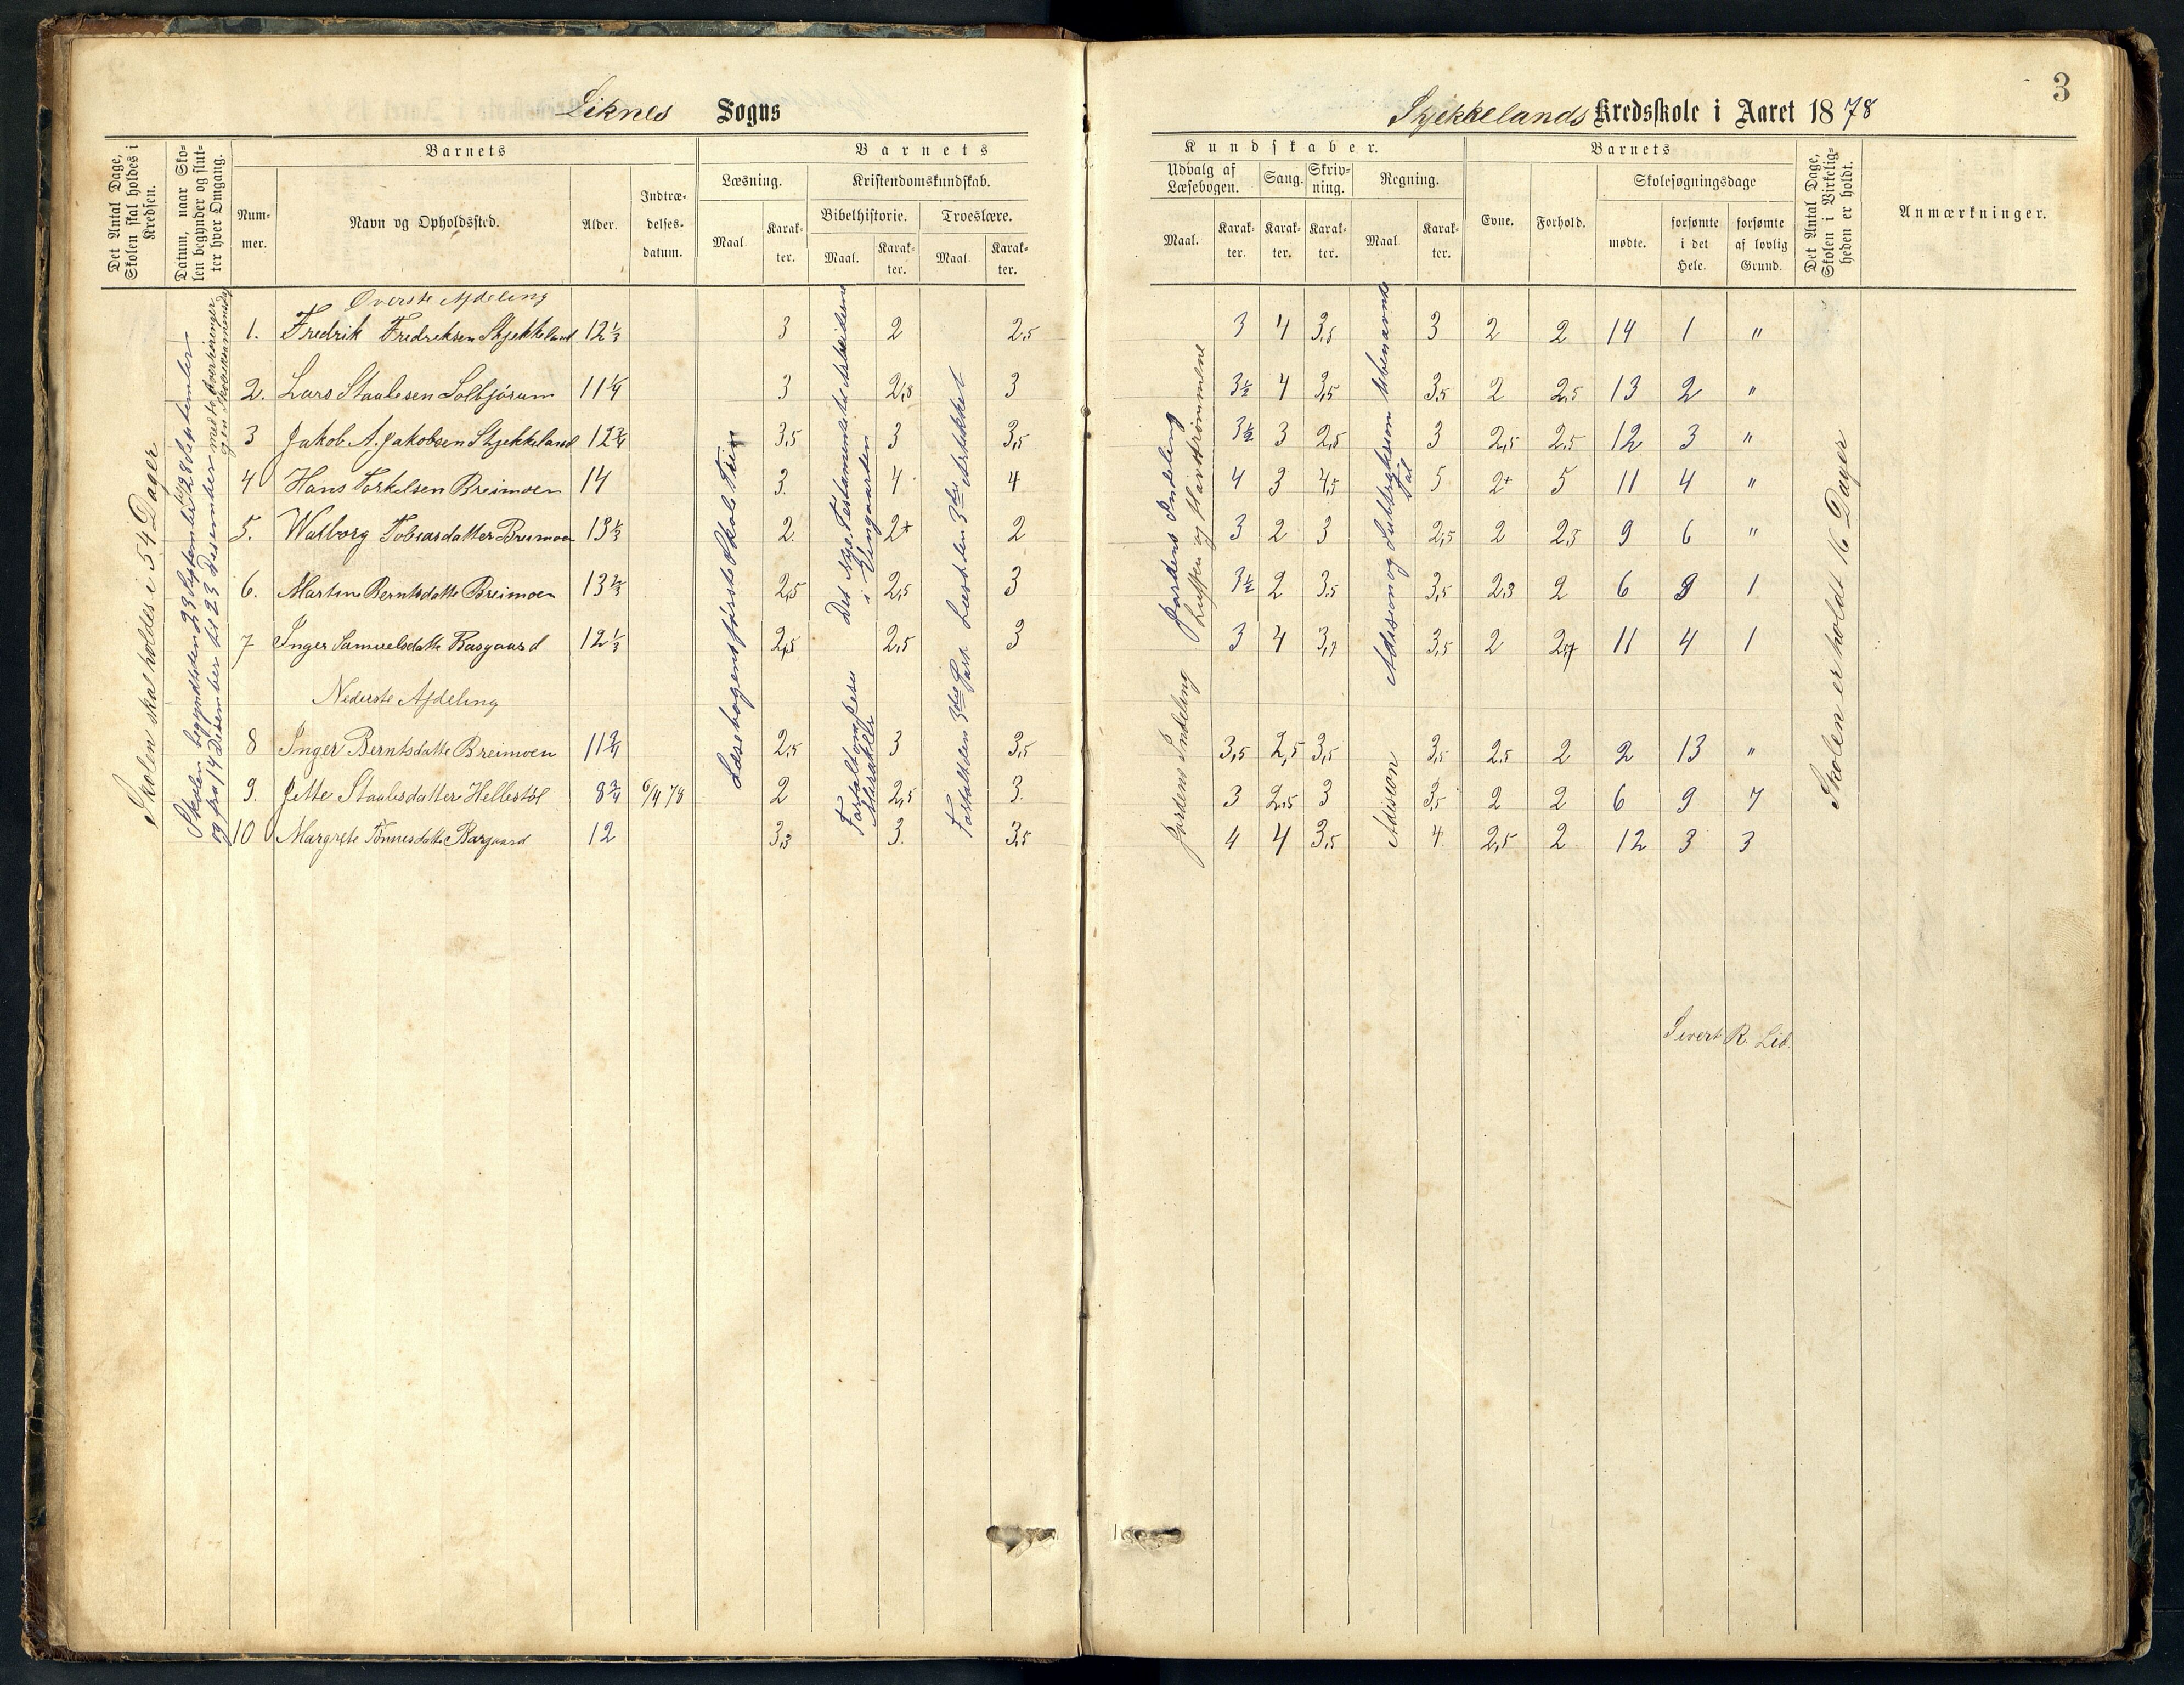 3
Liknes Sogns
Skjekkelands Kredsskole i Aaret 1878
Det Antal Dage, Skolen skal holdes i Kredsen.
Datum, naar Skolen begynder og slutter hver Omgang.
Barnets
Nummer.
Navn og Opholdssted.
Alder.
Indtrædelsesdatum.
Barnets Kundskaber.
Læsning.
Maal. Karakter.
Kristendomskundskab.
Bibelhistorie.
Maal. Karakter.
Troeslære.
Maal. Karakter.
Udvalg af Læsebogen.
Maal. Karakter.
Sang.
Karakter.
Skrivning.
Karakter.
Regning.
Maal. Karakter.
Barnets
Evne.
Forhold.
Skolesøgningsdage
mødte.
forsømte i det Hele.
forsømte af lovlig Grund.
Det Antal Dage, Skolen i Virkeligheden er holdt.
Anmærkninger.
Skolen skal holdes i 54 Dager
Skolen begyndte den 23 September til 28 September
og fra 14 Desember til 23 Desember med
Øverste Afdeling
1. Fredrik Fredreksen Skjekkeland 12 1/3 3 2 2,5 3 4 3,5 3 2 2 14 1 "
2. Lars Staalesen Solbjørum 11 1/4 3 2,5 3 3 1/2 4 3,5 3,5 2 2,5 13 2 "
3 Jakob A. Jakobsen Skjekkeland 12 3/4 3,5 3 3,5 3 1/2 3 2,5 3 2,5 2,5 12 3 "
4 Hans Torkelsen Breimoen 14 3. 4 4 4 3 4,5 5 2+ 5 11 4 "
5. Walborg Tobiasdatter Breimoen 13 1/3 2 2+ 2 3 2 3 2,5 2 2,5 9 6 "
6. Martine Berntsdatte Breimoen 13 2/3 2,5 2,5 3 3 1/2 2 3,5 3,5 2,3 2 6 9 1
7 Inger Samuelsdatte Basgaard 12 1/3 2,5 2,5 3 3 4 3,7 3,5 2 2,7 11 4 1
Nederste Afdeling
8 Inger Berntsdatte Breimoen 11 3/4 2,5 3 3,5 3,5 2,5 3,5 3,5 2,5 2 2 13 "
9. Jette Staalesdatter Hellestøl 8 3/4 6/4 78 2 2,5 3. 3 2,5 3 3,5 2 2 6 9 7
10 Margrete Tønnesdatte Basgaard 12 3,3 3. 3,5 4 4 3,5 4. 2,5 2 12 3 3
Læsebogens første Skole Trin
Det Nye Testamente Arbeiderne
i Vingaarden
Læst den 3die Artikkel
Fortalt om Jesu
Mirakler
Fortalt den 3die Part
Jordens Indeling
Luften og Havstrømmene
Jordens Indeling
Adisson og Subtraksion Ubenævnte
Tal
Adisson
Skolen er holdt 16 Dager
Sivert R. Lid.